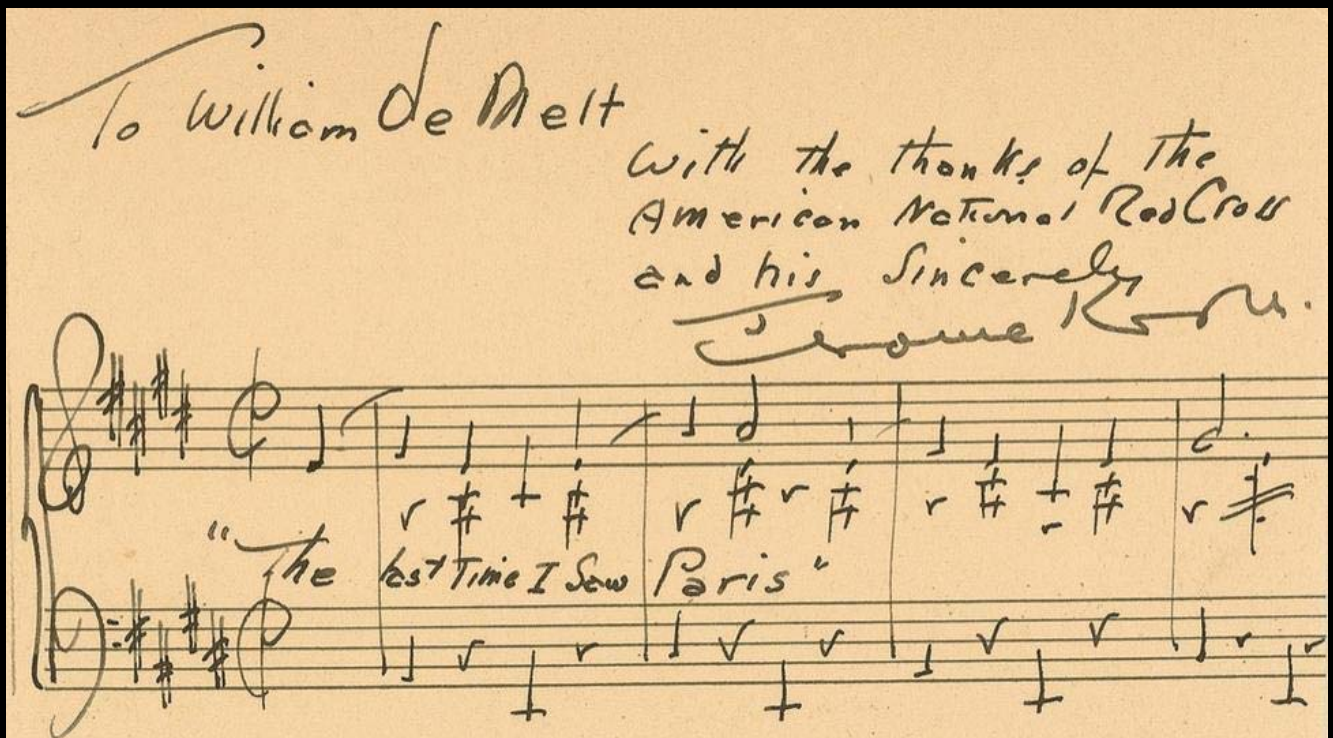 To William De Melt
With the thanks of the
American National Red Cross
and his Sincerely
Jerome Kern
"The last Time I Saw Paris"